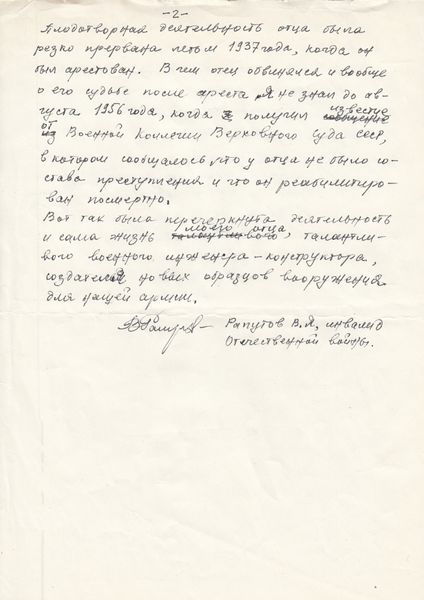 -2-
Плодотворная деятельность отца была
резко прервана летом 1937 года, когда он
был арестован. В чем отец обвинялся и вообще
о его судьбе после ареста я не знал до ав-
густа 1956 года, когда я получил известие
сообщение
от
из Военной Коллегии Верховного Суда СССР,
в котором сообщалось, что у отца не было со-
става преступления и что он реабилитиро-
ван посмертно.
Вот так была перечеркнута деятельность
моего отца,
и сама жизнь талантливого, талантли-
вого военного инженера-конструктора,
создателя новых образцов вооружения
для нашей армии.
Рапутов В.Я, инвалид
Отечественной войны.